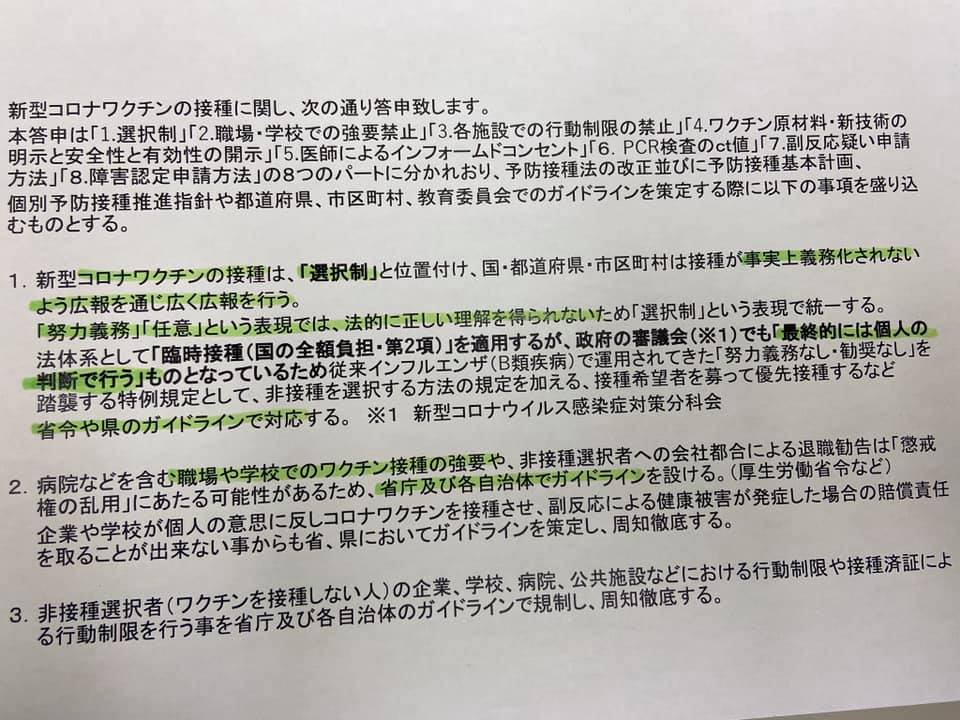 新型コロナワクチンの接種に関し、次の通り答申致します。
本答申は「1.選択制」「2.職場・学校での強要禁止」「3.各施設での行動制限の禁止」「4.ワクチン原材料・新技術の
明示と安全性と有効性の開示」「5.医師によるインフォームドコンセント」「6. PCR検査のct値」「7.副反応疑い申請
方法」「8.障害認定申請方法」の8つのパートに分かれおり、予防接種法の改正並びに予防接種基本計画、
個別予防接種推進指針や都道府県、市区町村、教育委員会でのガイドラインを策定する際に以下の事項を盛り込
むものとする。
1. 新型コロナワクチンの接種は、「選択制」と位置付け、国・都道府県・市区町村は接種が事実上義務化されない
よう広報を通じ広く広報を行う。
「努力義務」「任意」という表現では、法的に正しい理解を得られないため「選択制」という表現で統一する。
法体系として「臨時接種(国の全額負担・第2項)」を適用するが、政府の審議会(※1)でも「最終的には個人の
判断で行う」ものとなっているため従来インフルエンザ(B類疾病)で運用されてきた「努力義務なし・勧奨なし」を
踏襲する特例規定として、非接種を選択する方法の規定を加える、接種希望者を募って優先接種するなど
省令や県のガイドラインで対応する。 ※1 新型コロナウイルス感染症対策分科会
2. 病院などを含む職場や学校でのワクチン接種の強要や、非接種選択者への会社都合による退職勧告は「懲戒
権の乱用」にあたる可能性があるため、省庁及び各自治体でガイドラインを設ける。(厚生労働省令など)
企業や学校が個人の意思に反しコロナワクチンを接種させ、副反応による健康被害が発症した場合の賠償責任
を取ることが出来ない事からも省、県においてガイドラインを策定し、周知徹底する。
3. 非接種選択者(ワクチンを接種しない人)の企業、学校、病院、公共施設などにおける行動制限や接種済証によ
る行動制限を行う事を省庁及び各自治体のガイドラインで規制し、周知徹底する。